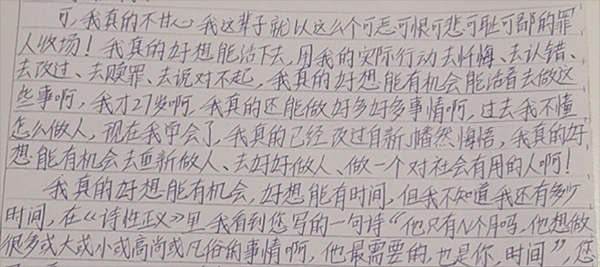 可,我真的不甘心我这辈子就以这么个可恶可恨可悲可耻可鄙的罪
人收场!我真的好想能活下去,用我的实际行动去忏悔、去认错、
去改过、去赎罪、去说对不起,我真的好想能有机会能活着去做这
些事啊,我才27岁啊,我真的还能做好多好多事情啊,过去我不懂
怎么做人,现在我学会了,我真的已经改过自新幡然悔悟,我真的好
想能有机会去重新做人、去好好做人、做一个对社会有用的人啊!
我真的好想能有机会,好想能有时间,但我不知道我还有多少
时间,在《诗性正义》里我看到您写的一句诗“他只有N个月吗,他想做
很多或大或小或高尚或凡俗的事情啊,他最需要的,也是你,时间”,您